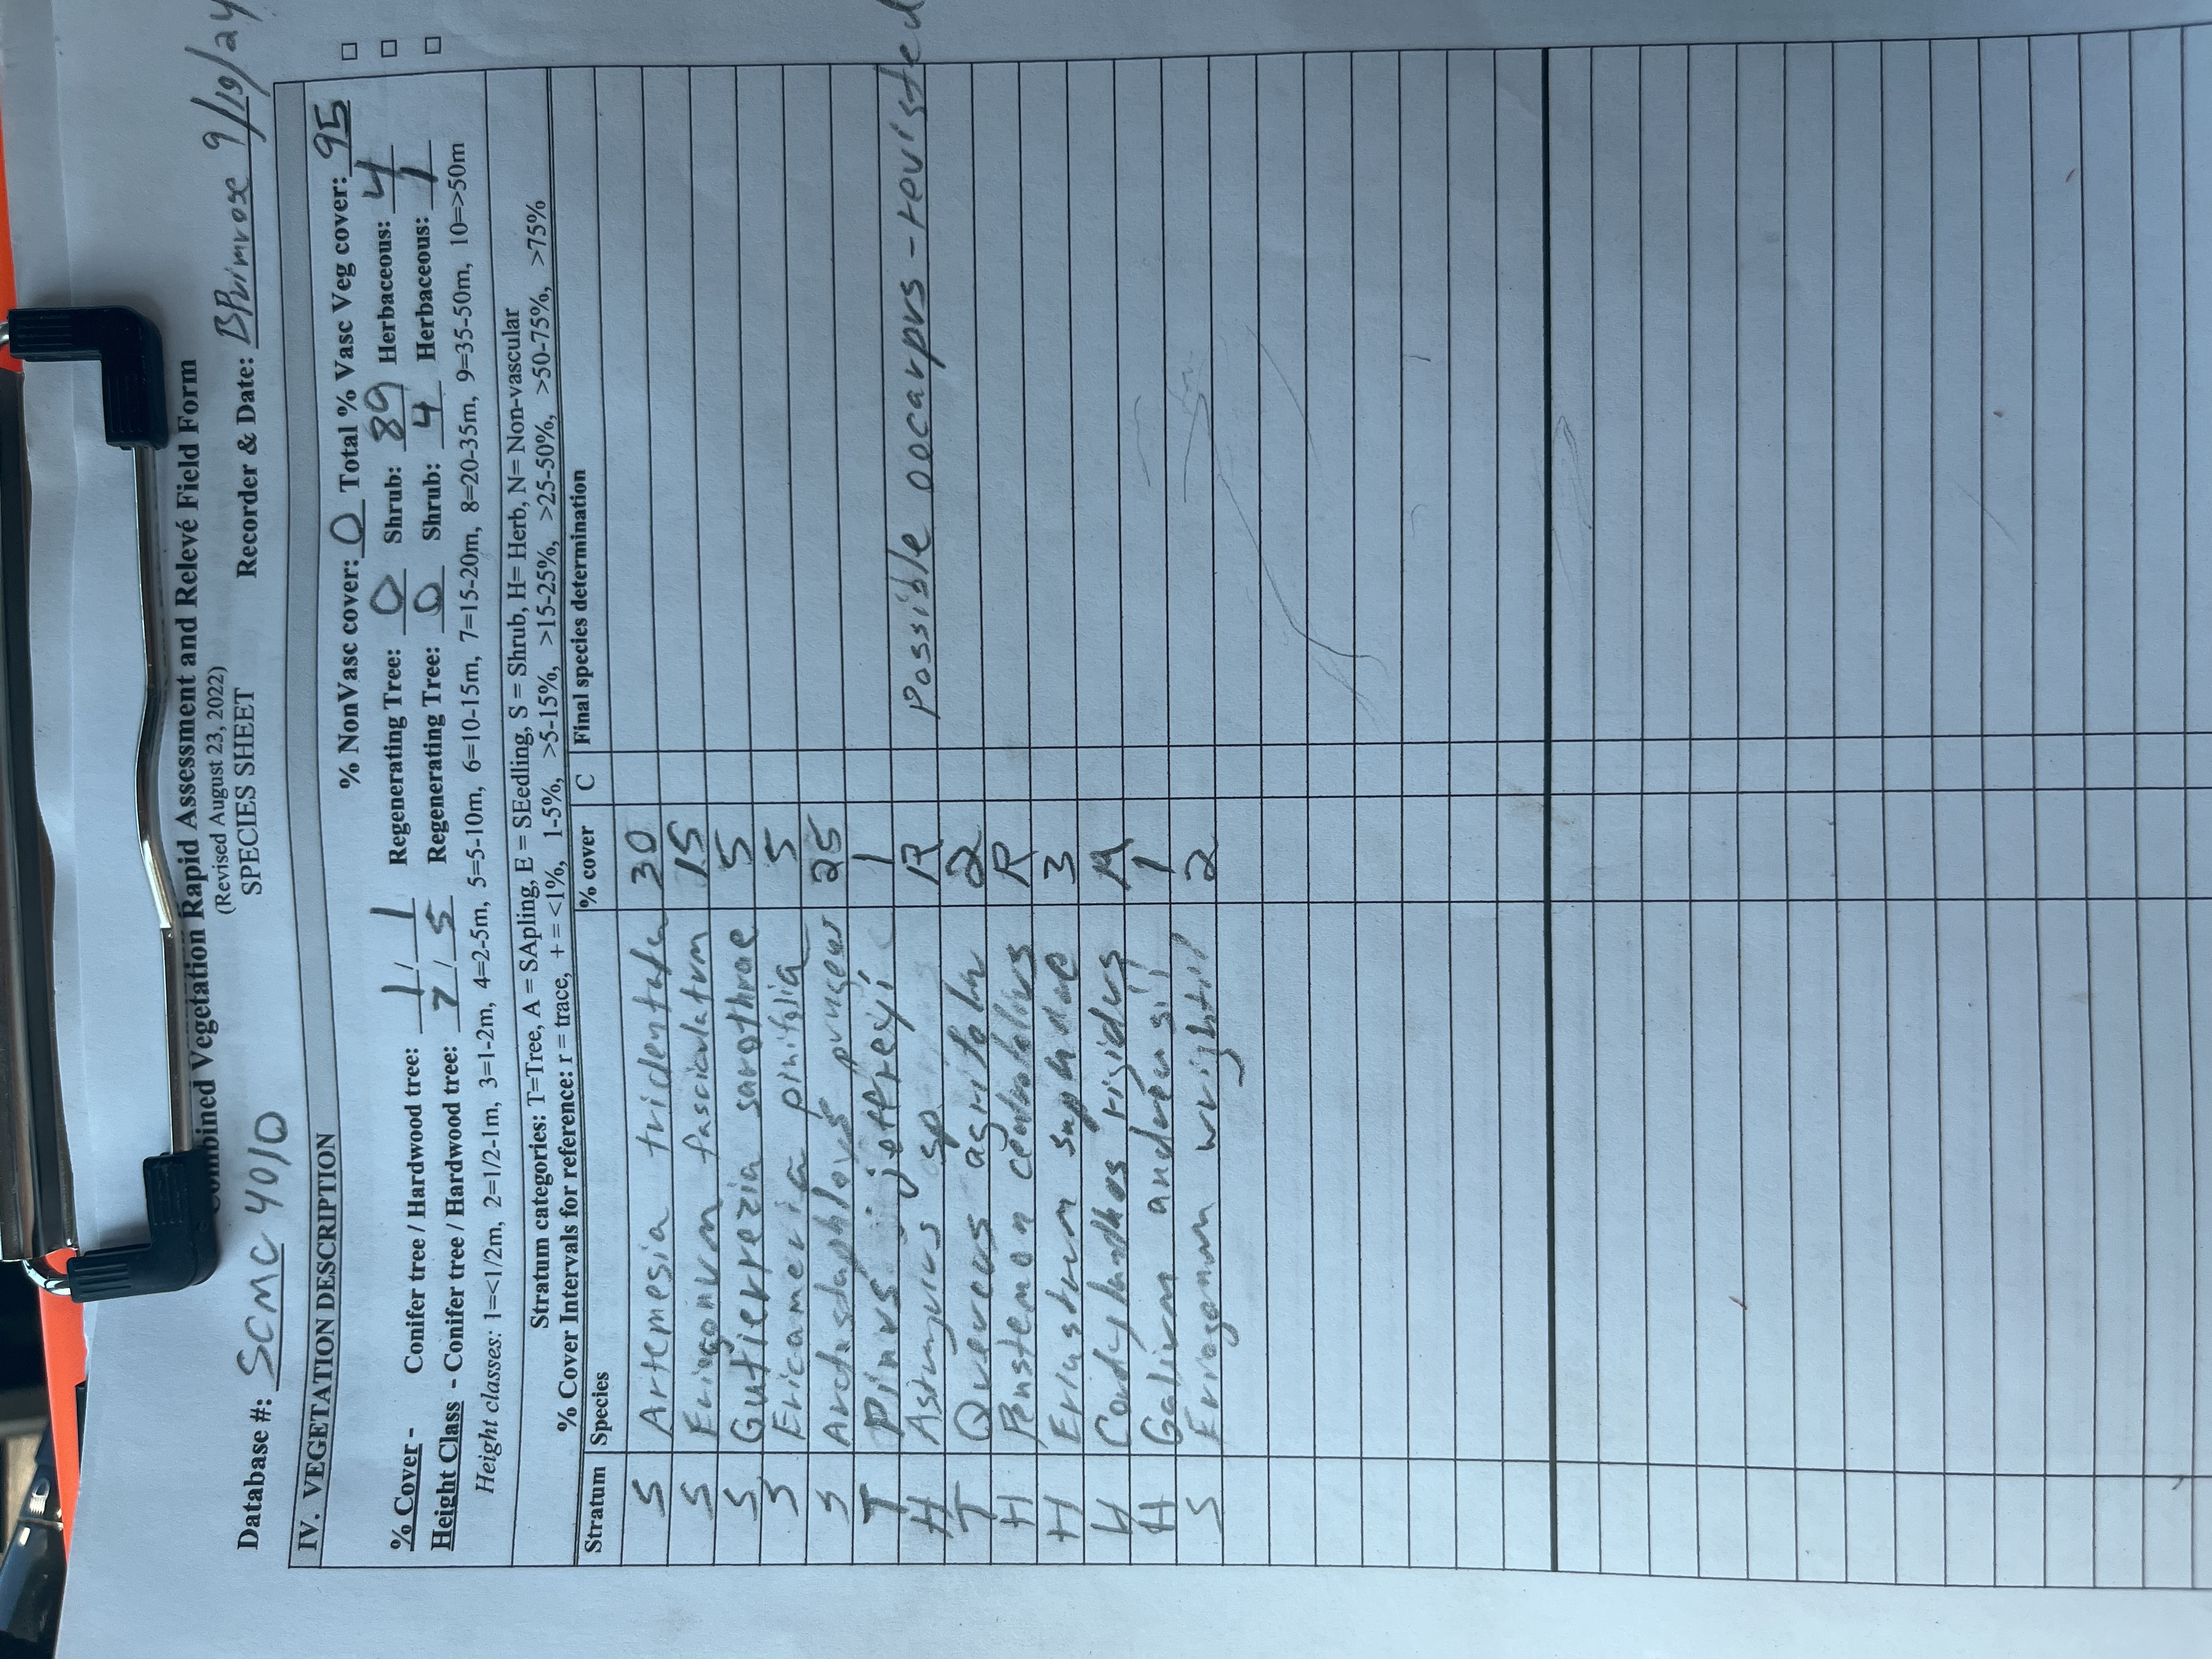 Combined Vegetation Rapid Assessment and Relevé Field Form
(Revised August 23, 2022)
SPECIES SHEET
Database #: SCMC 4010 Recorder & Date: BPrimrose 9/19/24
IV. VEGETATION DESCRIPTION
% NonVasc cover: 0 Total % Vasc Veg cover: 95
% Cover - Conifer tree / Hardwood tree: 1 / 1 Regenerating Tree: 0 Shrub: 89 Herbaceous: 4
Height Class - Conifer tree / Hardwood tree: 7 / 5 Regenerating Tree: 0 Shrub: 4 Herbaceous: 1
Height classes: 1=<1/2m, 2=1/2-1m, 3=1-2m, 4=2-5m, 5=5-10m, 6=10-15m, 7=15-20m, 8=20-35m, 9=35-50m, 10=>50m
Stratum categories: T=Tree, A = SApling, E = SEedling, S = Shrub, H= Herb, N= Non-vascular
% Cover Intervals for reference: r = trace, + = <1%, 1-5%, >5-15%, >15-25%, >25-50%, >50-75%, >75%
Stratum Species % cover C Final species determination
S Artemesia tridentata 30
S Eriogonum fasciculatum 15
S Gutierrezia sarothrae 5
S Ericameria pinifolia 5
S Arctostaphlovs pungens 25
T Pinus jeffreyi 1
H Astragulus sp R Possible oocarpus - revisited
T Quercus agrifolia 2
H Penstemon centrafolius R
H Eriastrum saphirae 3
H Cordylandhos rigidus R
H Galium andrewsii 1
S Eriogonum wrightii 2